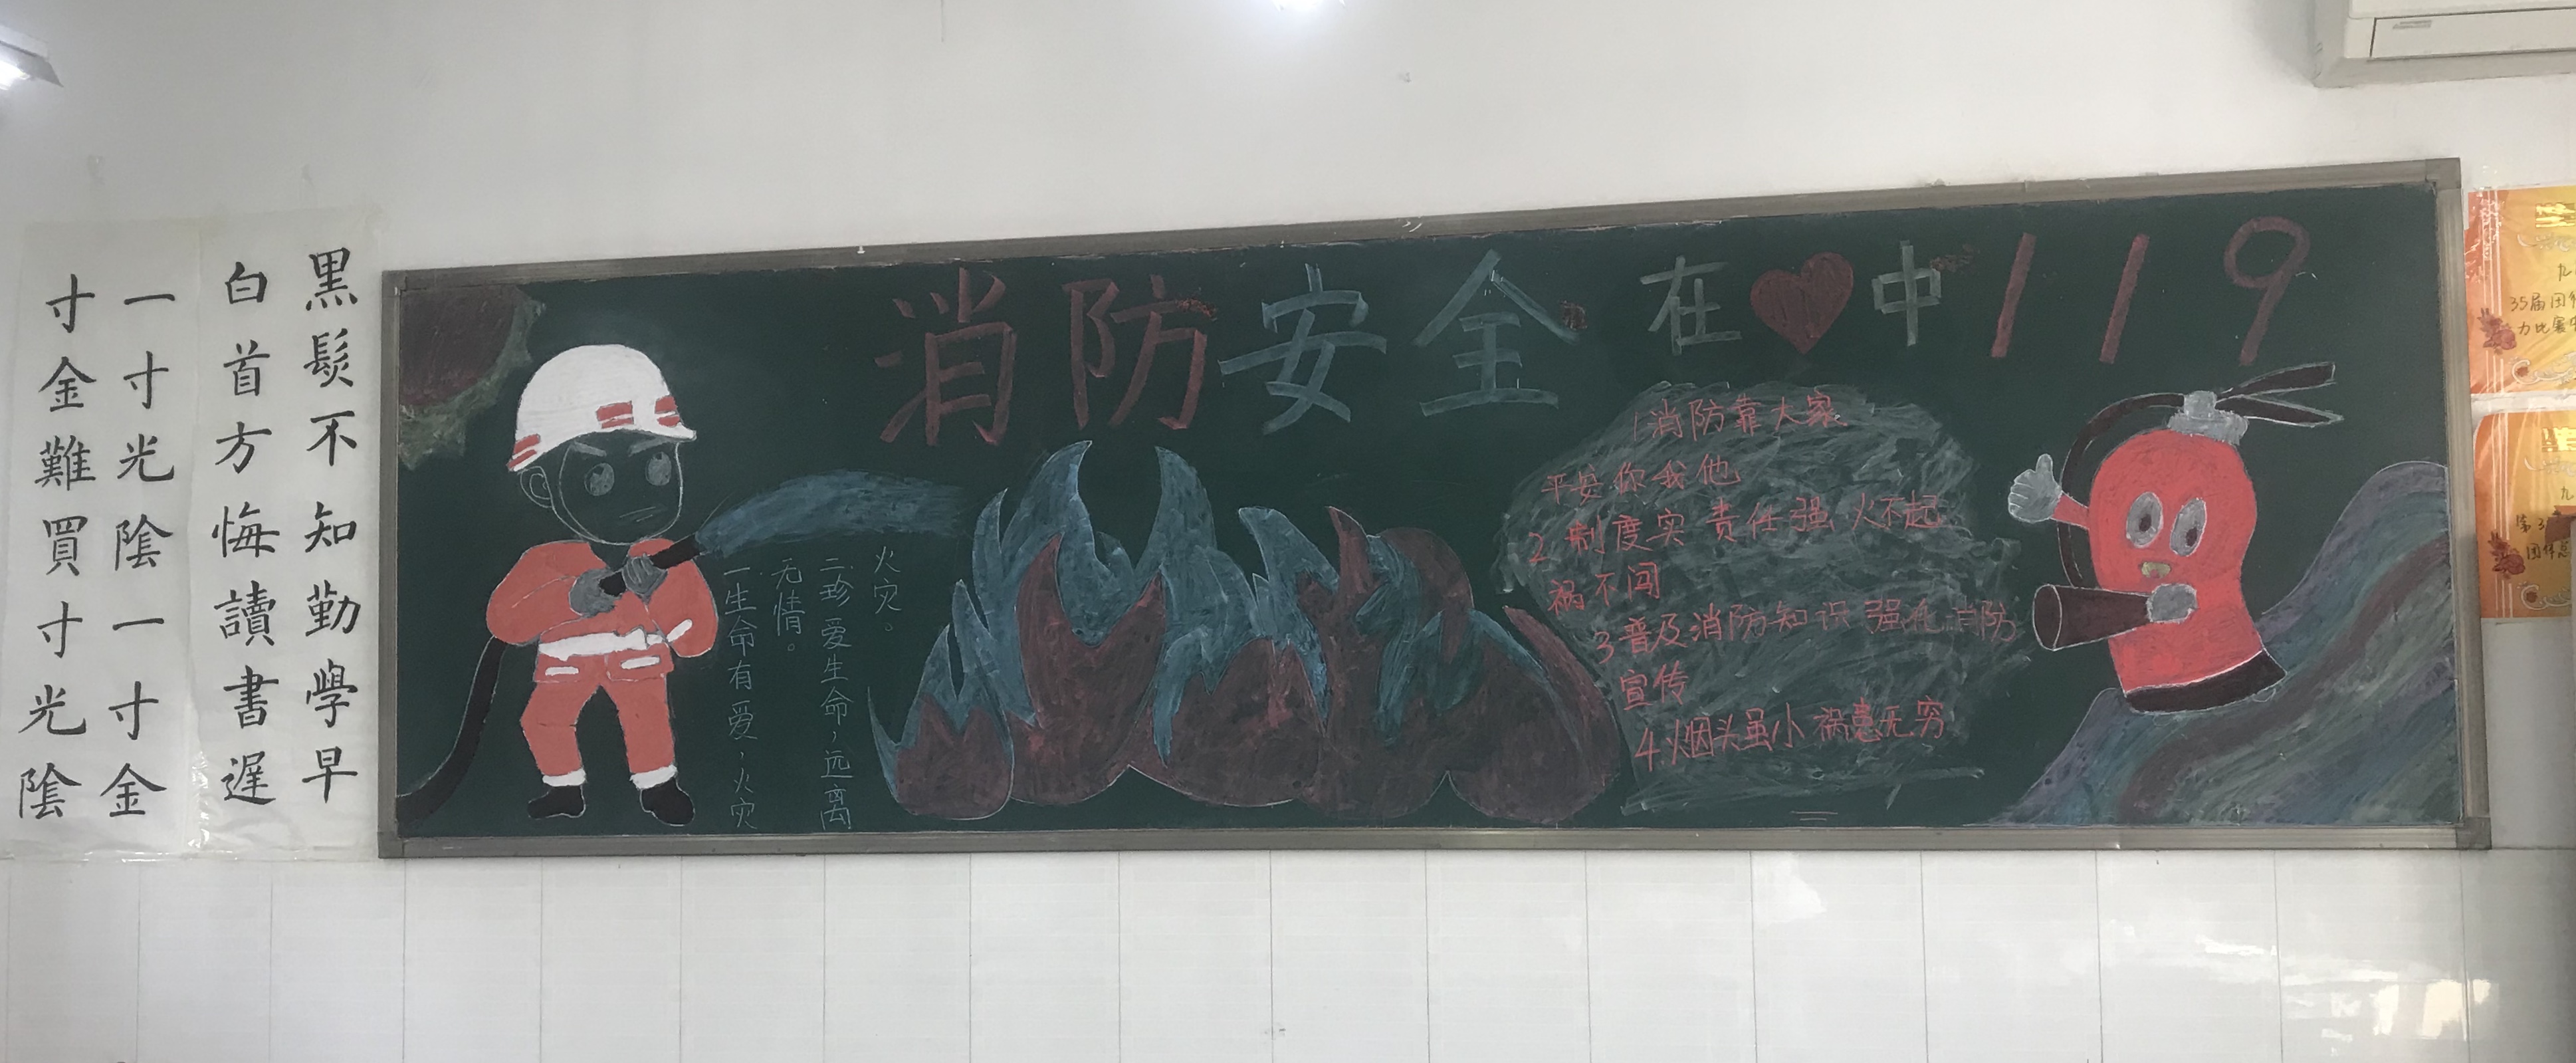 黑髮不知勤學早
白首方悔讀書遲
一寸光陰一寸金
寸金難買寸光陰
消防安全在中119
一生命有爱，火灾
无情。
二珍爱生命，远离
火灾。
1消防靠大家
平安你我他
2制度实责任强火不起
祸不闯
3普及消防知识强化消防
宣传
4.烟头虽小祸患无穷
35届团
力比赛